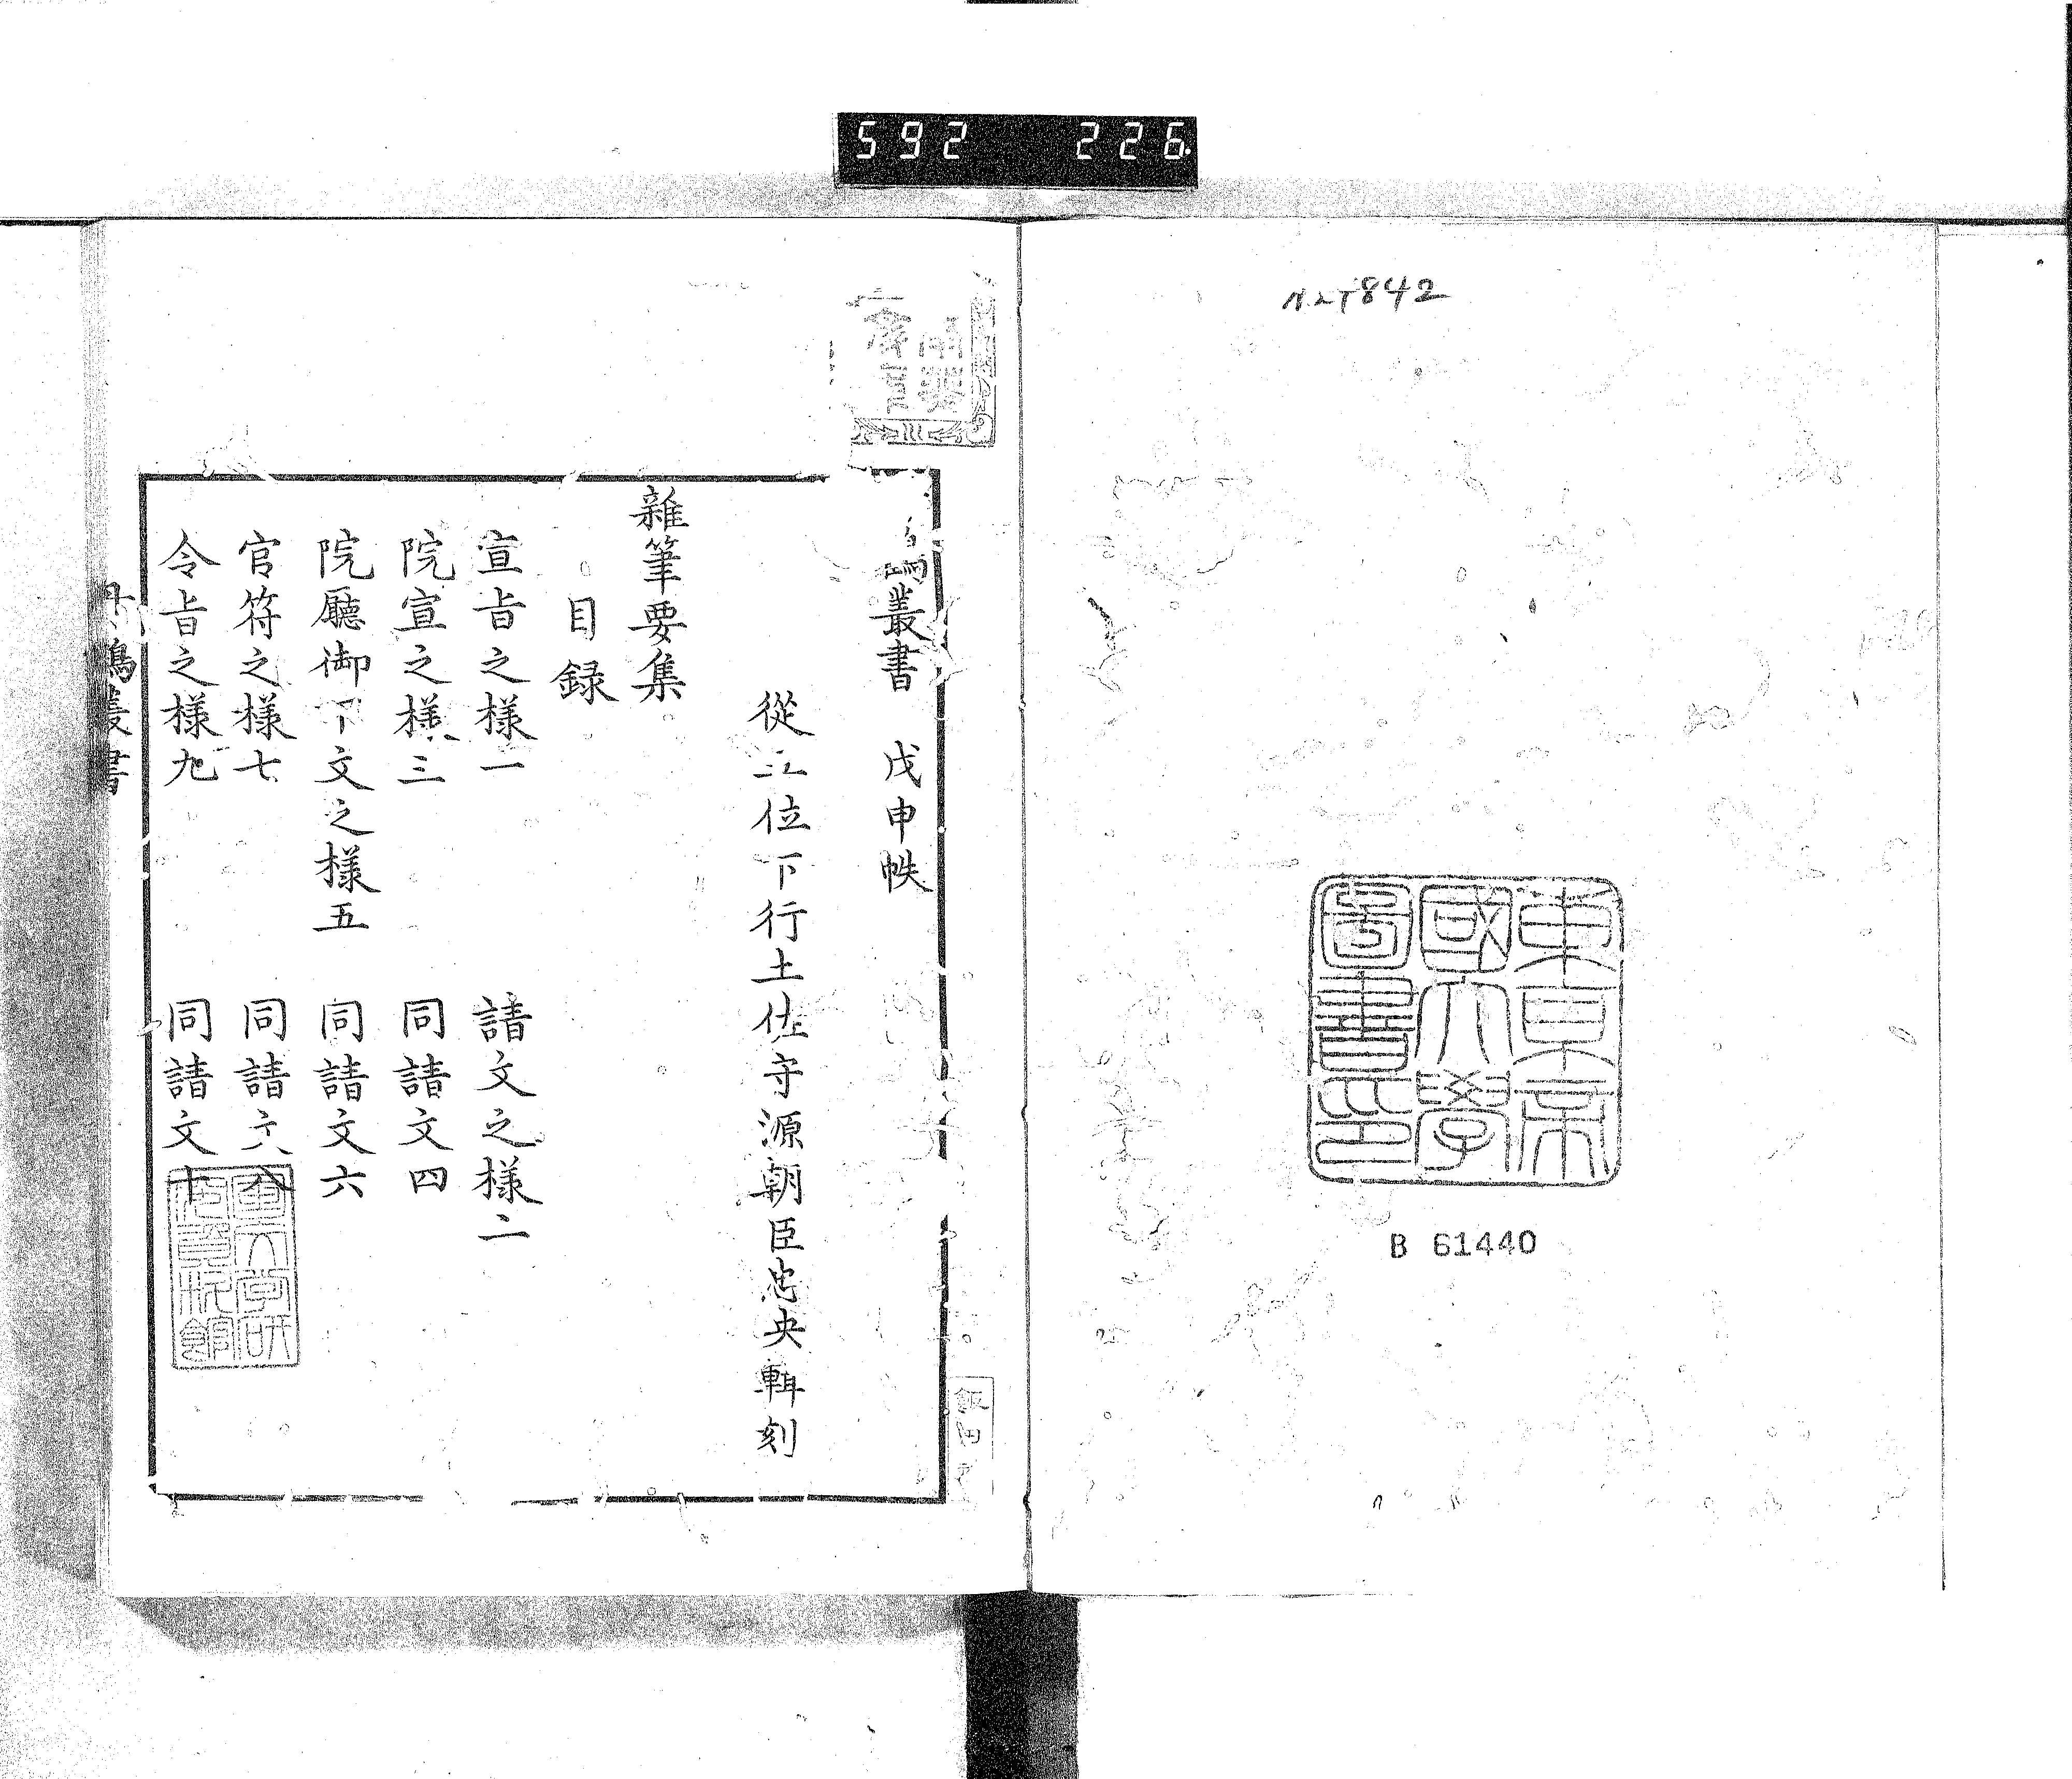 592 226.
842
東京帝
國大學
圖書印
B 61440
叢書 戊申帙
從五位下行土佐守源朝臣忠央輯刻
雜筆要集
目録
宣旨之様一 請文之様二
院宣之様三 同請文四
院廳御下文之様五 同請文六
官符之様七 同請文八
令旨之様九 同請文十
飯田
鶴叢書